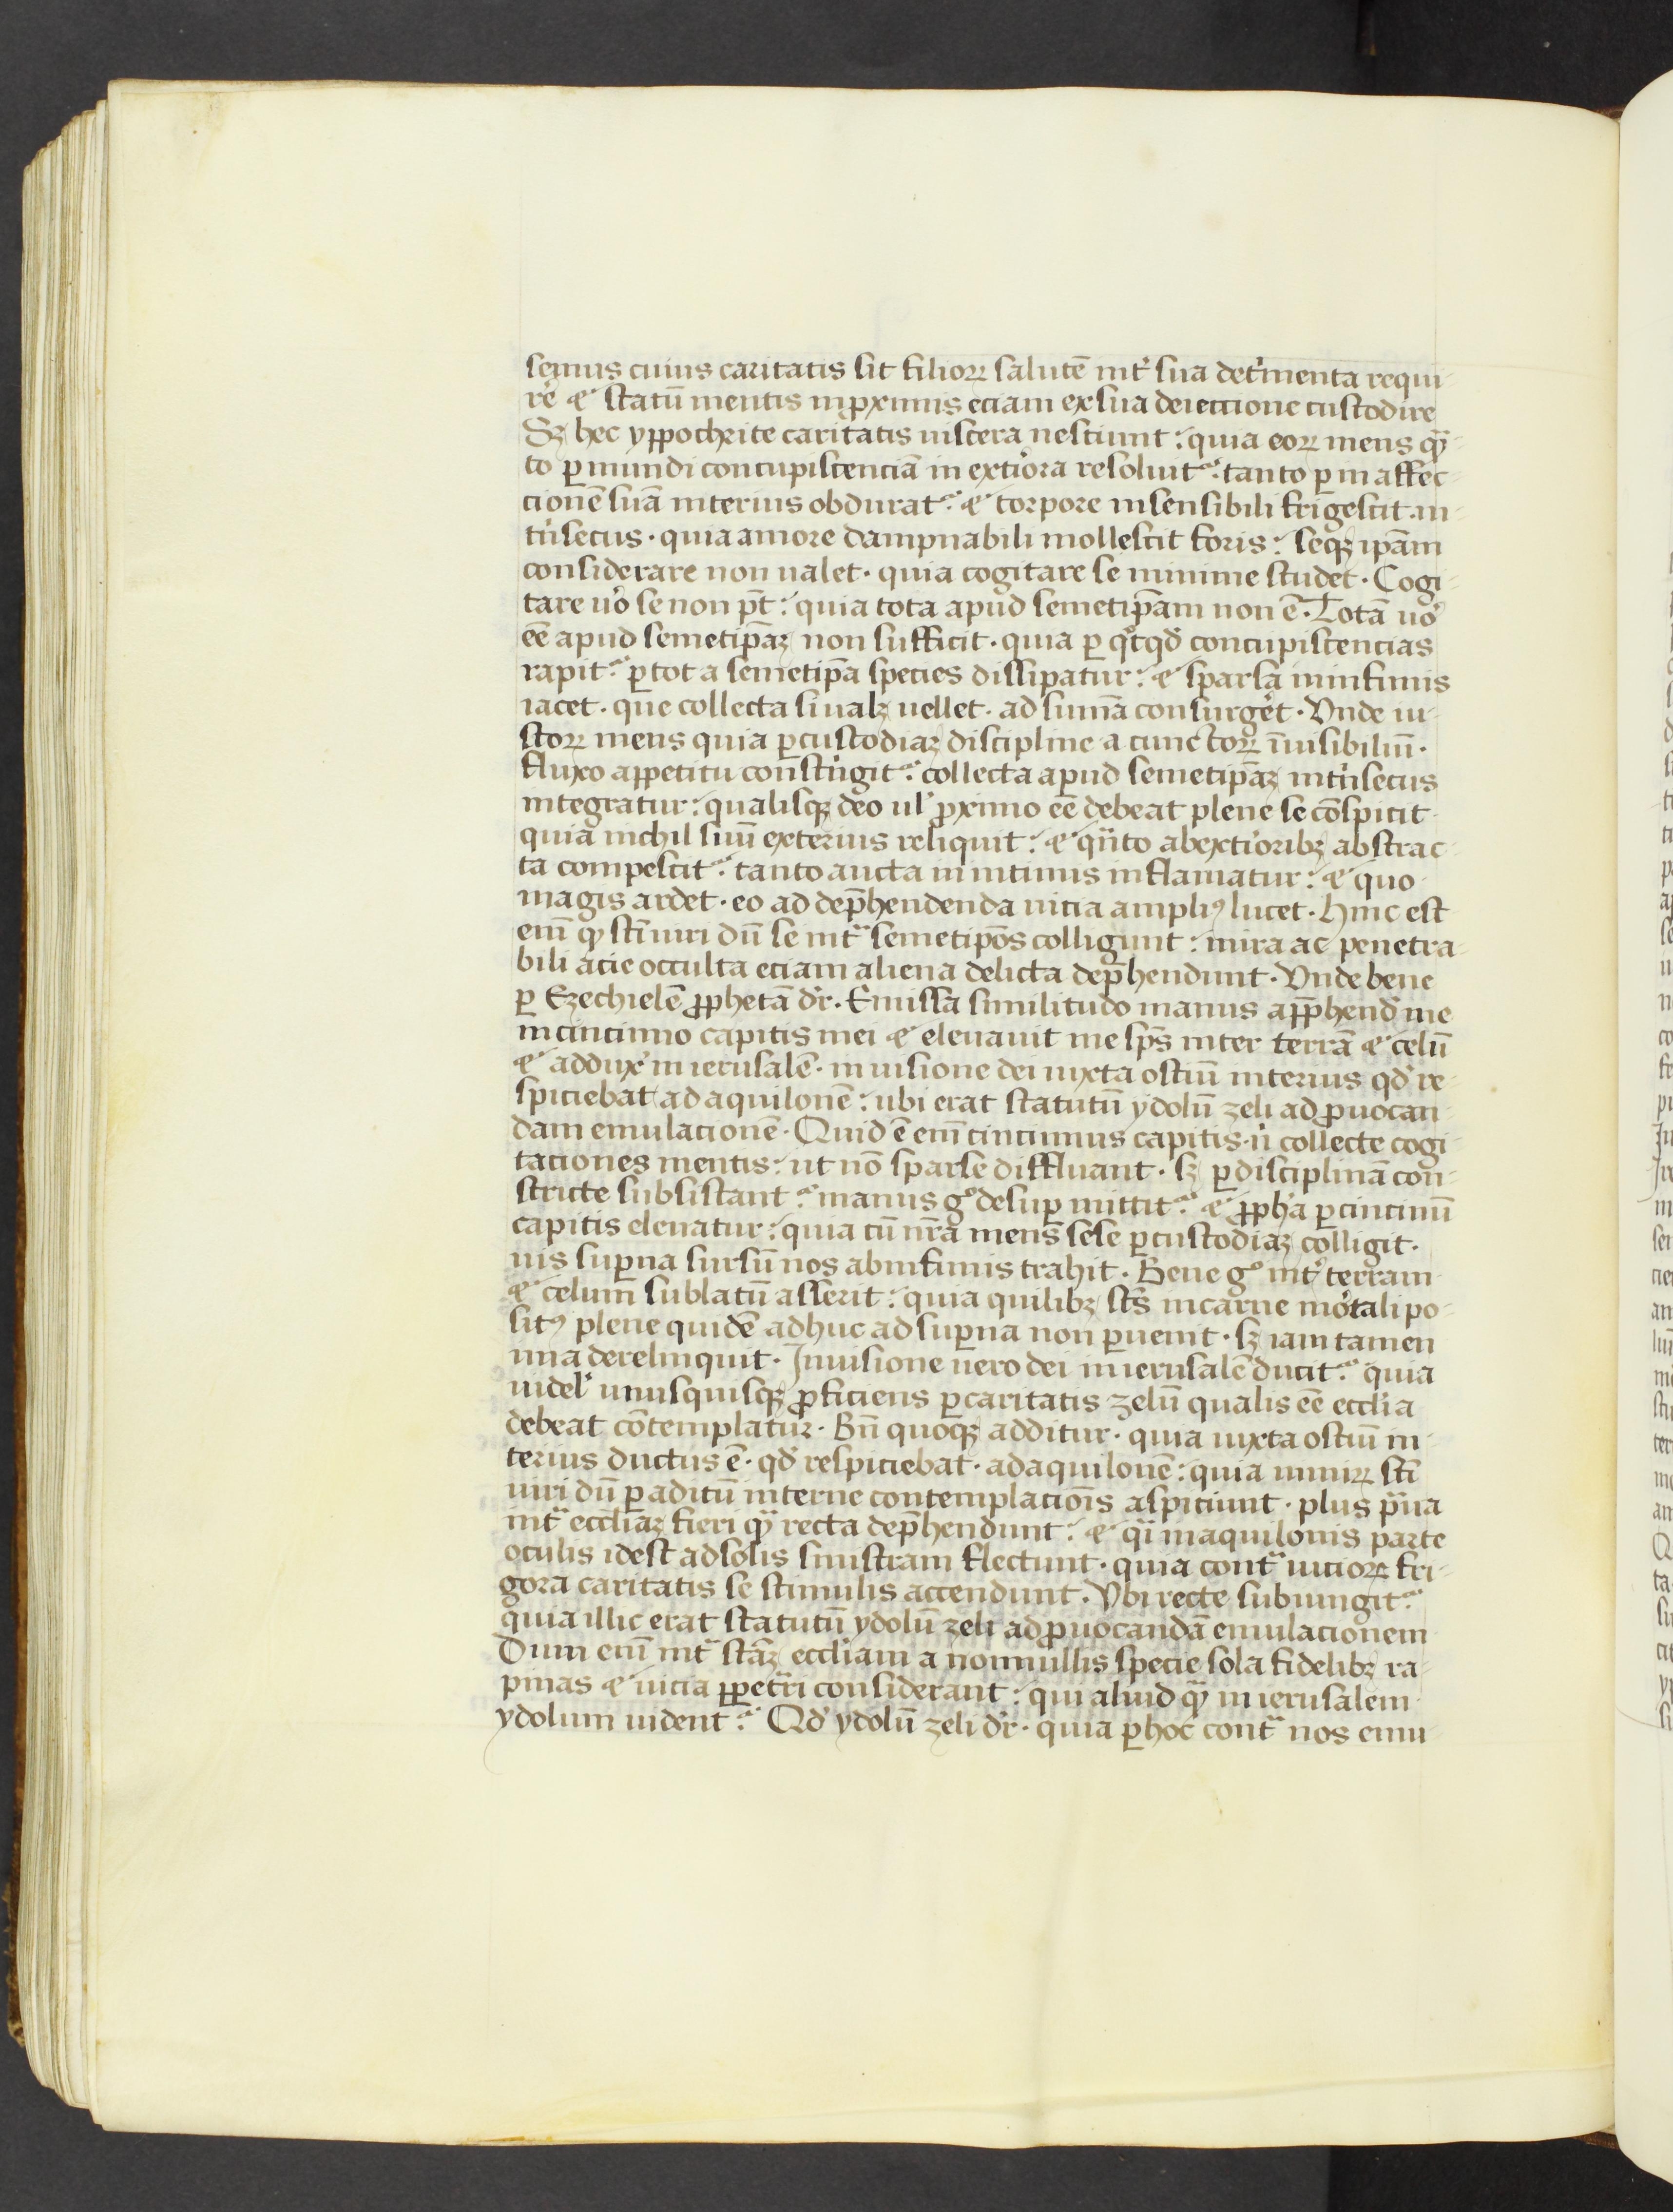 semus cuius caritatis sit filioꝝ salutē int̾ sua det̾menta requi-
re ⁊ statū mentis in ꝓximis eciam ex sua deieccione custodire
Sꝫ hec yppochrite caritatis uiscera nesciunt: quia eoꝝ mens qͣ̄-
to ꝑ mundi concupiscenciā in exti̾ora resoluit᷑: tanto ꝑ in affec-
cionē suā interius obdurat᷑: ⁊ torpore insensibili frigescit in-
tͥsecus · quia amore dampnabili mollescit foris: seqꝫ ip̄am
considerare non ualet · quia cogitare se minime studet · Cogi-
tare uͦo se non pt̄: quia tota apud semetip̄am non ē · Totā uͦo
eē apud semetip̄aꝫ non sufficit · quia ꝑ qͦtqd̾ concupiscencias
rapit᷑ ꝑ tot a semetip̄a species dissipatur: ⁊ sparsa in infimis
iacet · que collecta si ualꝫ uellet · ad sum̄a consurgēt · Vnde iu-
stoꝝ mens quia ꝑ custodiaꝫ discipline a cunctoꝝ īuisibiliū ·
fluxo appetitu constͥngit᷑: collecta apud semetip̄aꝫ intͥsecus
integratur: qualisqꝫ deo ul̾ ꝓximo eē debeat plene se cōspicit
quia nichil suū exterius reliquit: ⁊ qͣ̄to ab exti̾oribꝫ abstrac-
ta compescit᷑ · tanto aucta in intimis inflamatur: ⁊ quo
magis ardet · eo ad dep̄hendenda uicia ampliꝰ lucet · Hinc est
eni̅ ꝙ sc̄i uiri dū se intͣ semetip̄os colligunt: mira ac penetra-
bili acie occulta eciam aliena delicta dep̄hendunt · Vnde bene
ꝑ Ezechielē ꝓphetā dr̄ · Emissa similitudo manus app̄hend̾ me
in cincinno capitis mei ⁊ eleuauit me sp̄s inter terrā ⁊ celū
⁊ addux̾ in ierusalē · in uisione dei iuxta ostiū interius qd̾ re-
spiciebat ad aquilonē: ubi erat statutū ydolū zeli ad ꝓuocan-
dam emulacionē · Quid ē eni̅ cincinnus capitis · nͥ collecte cogi-
taciones mentis: ut nō sparse diffluant · sꝫ ꝑ disciplinā con-
stricte subsistant᷑ · manus gͦ desuꝑ mittit᷑ ⁊ ꝓph̾a ꝑ cincinnū
capitis eleuatur: quia cū nr̄a mens sese ꝑ custodiaꝫ colligit ·
uis suꝑna sursū nos ab infimis trahit · Bene gͦ int̾ terram
⁊ celum sublatū asserit: quia quilibꝫ sc̄s in carne mo̾tali po-
sitꝰ plene quidē adhuc ad suꝑna non ꝑuenit · sꝫ iam tamen
ima derelinquit · In uisione uero dei in ierusalē ducit᷑ · quia
uidelꝫ unusquisqꝫ ꝓficiens ꝑ caritatis zelū qualis eē ecclīa
debeat cōtemplatur · Bn̄ quoqꝫ additur · quia iuxta ostiū in-
terius ductus ē · qd̾ respiciebat · ad aquilonē: quia nimiꝝ sc̄i
uiri dū ꝑ aditū interne contemplacionis aspiciunt · plus pͣua
intͣ eccliaꝫ fieri qͣ̄ recta dep̄hendunt: ⁊ qͣi in aquilonis parte
oculis idest ad solis sinistram flectunt · quia contͣ uicioꝝ fri-
gora caritatis se stimulis accendunt · Vbi recte subiungit᷑
quia illic erat statutū ydolū zeli ad ꝓuocandā emulacionem
Dum eni̅ intͣ sc̄aꝫ eccliam a nonnullis specie sola fidelibꝫ ra-
pinas ⁊ uicia ꝑpetͣri considerant: qui aliud qͣ̄ in ierusalem
ydolum uident᷑ Qd̾ ydolū zeli dr̄ · quia ꝑ hoc contͣ nos emu-